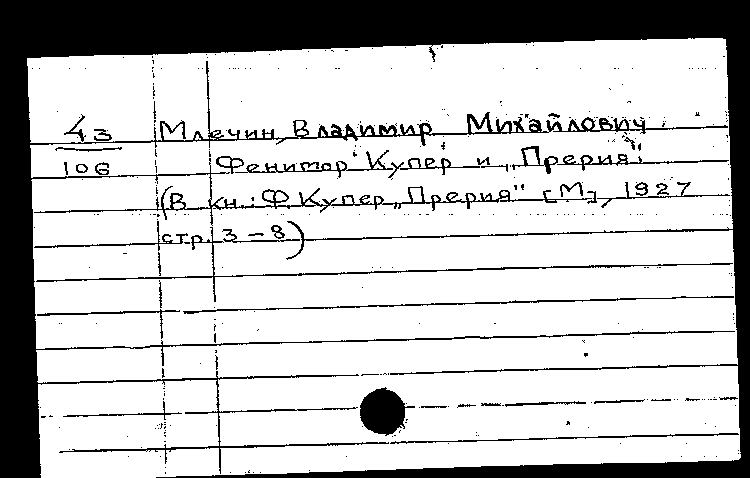 43 Млечин, Владимир Михайлович
106 Фенимор Купер и „Прерия"
(В кн.: Ф. Купер „Прерия" [М], 1927
стр. 3-8)